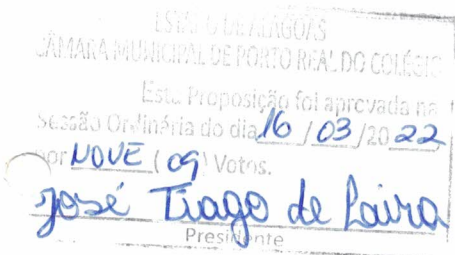 ESTADO DE ALAGOAS
CÂMARA MUNICIPAL DE PORTO REAL DO COLÉGIO
Esta Proposição foi aprovada na
Sessão Ordinária do dia 16 / 03 /20 22
por NOVE ( 09 ) Votos.
José Tiago de Paiva
Presidente